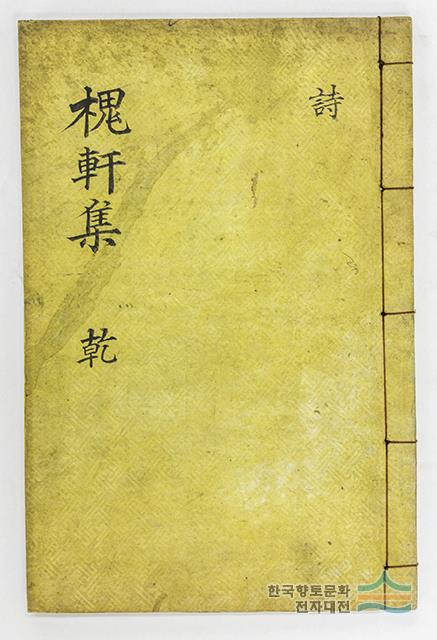 詩
槐軒集 乾
한국향토문화
전자대전